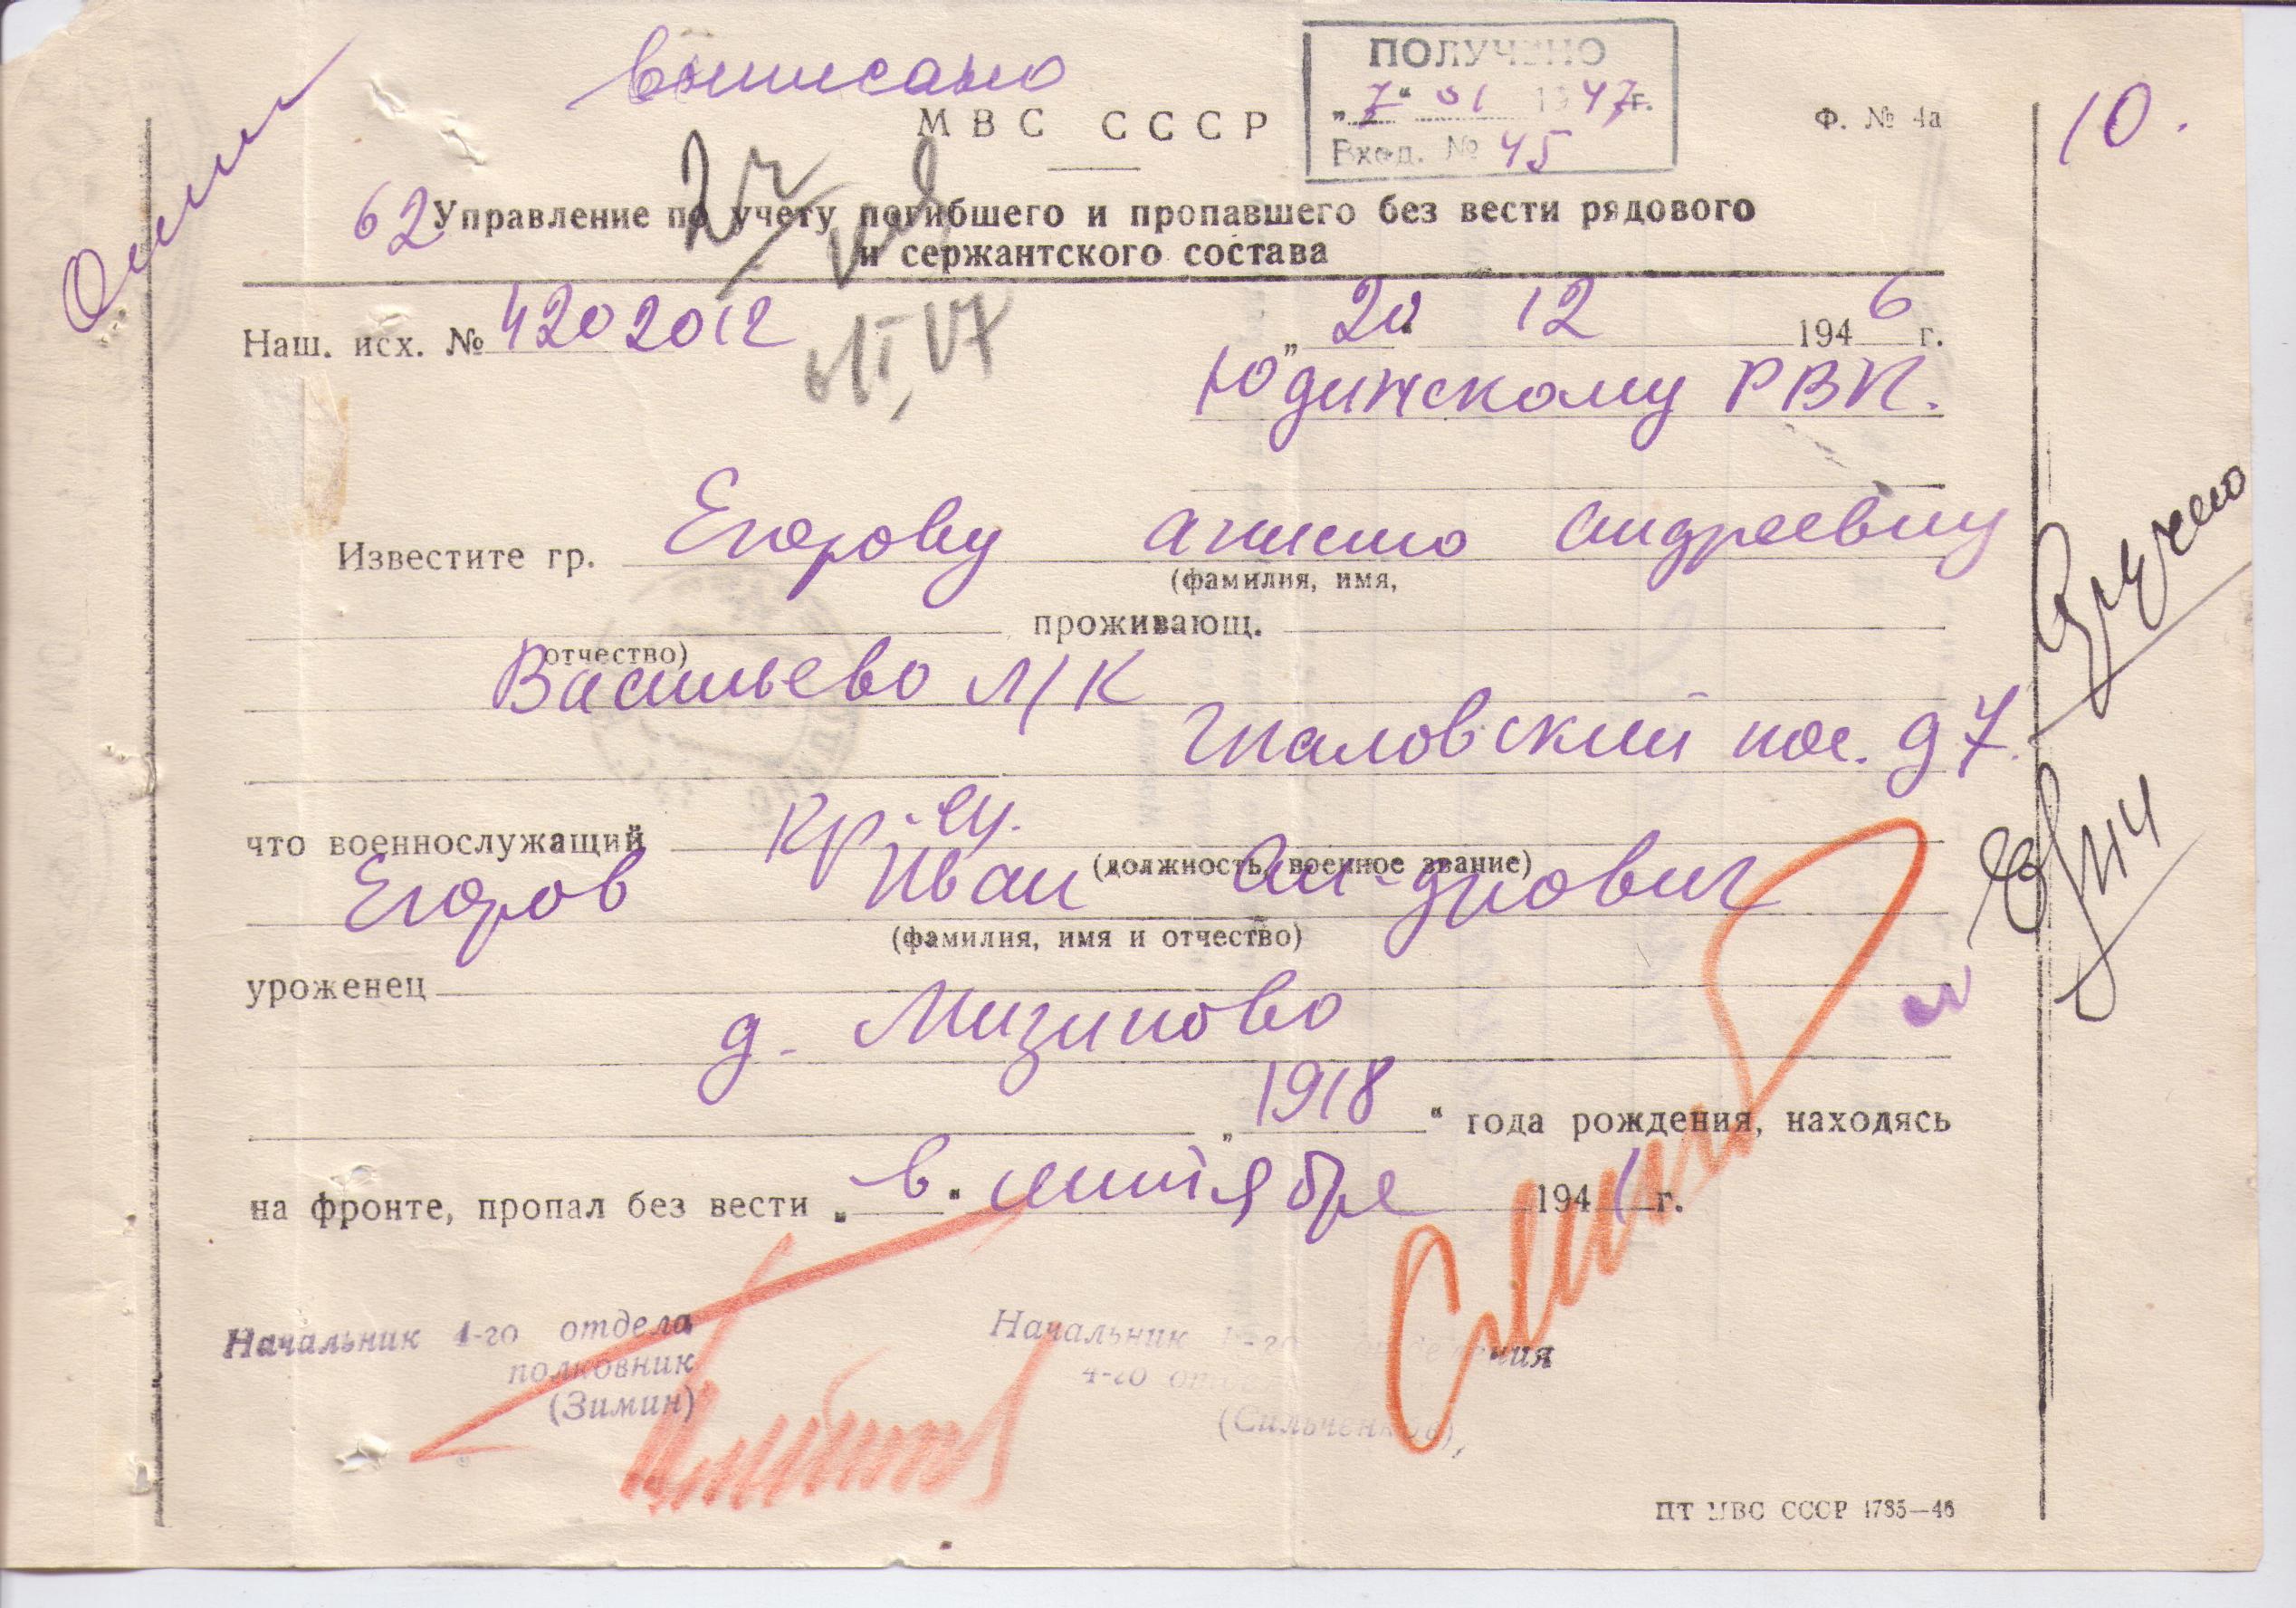 выписано
ПОЛУЧЕНО
„7“ 01 1947г.
Вход. № 45
МВС СССР
Ф. № 4а
10.
62 Управление по учету погибшего и пропавшего без вести рядового
и сержантского состава
Наш. исх. № 4202012
„20“ 12 1946 г.
Юдинскому РВК.
Известите гр. Егорову Анисию Андреевну
(фамилия, имя,
проживающ.
отчество)
Васильево Л/К
Чкаловский пос. д 7.
Вручено
что военнослужащий кр-ец.
(должность, военное звание)
Егоров Иван Ан-дреович
(фамилия, имя и отчество)
уроженец
д. Мизиново
„1918“ года рождения, находясь
на фронте, пропал без вести „в“ сентябре 1941 г.
Начальник 4-го отдела
полковник
(Зимин)
Начальник 1-го отделения
4-го отдела
(Сильченков)
ЦТ МВС СССР 4785—46